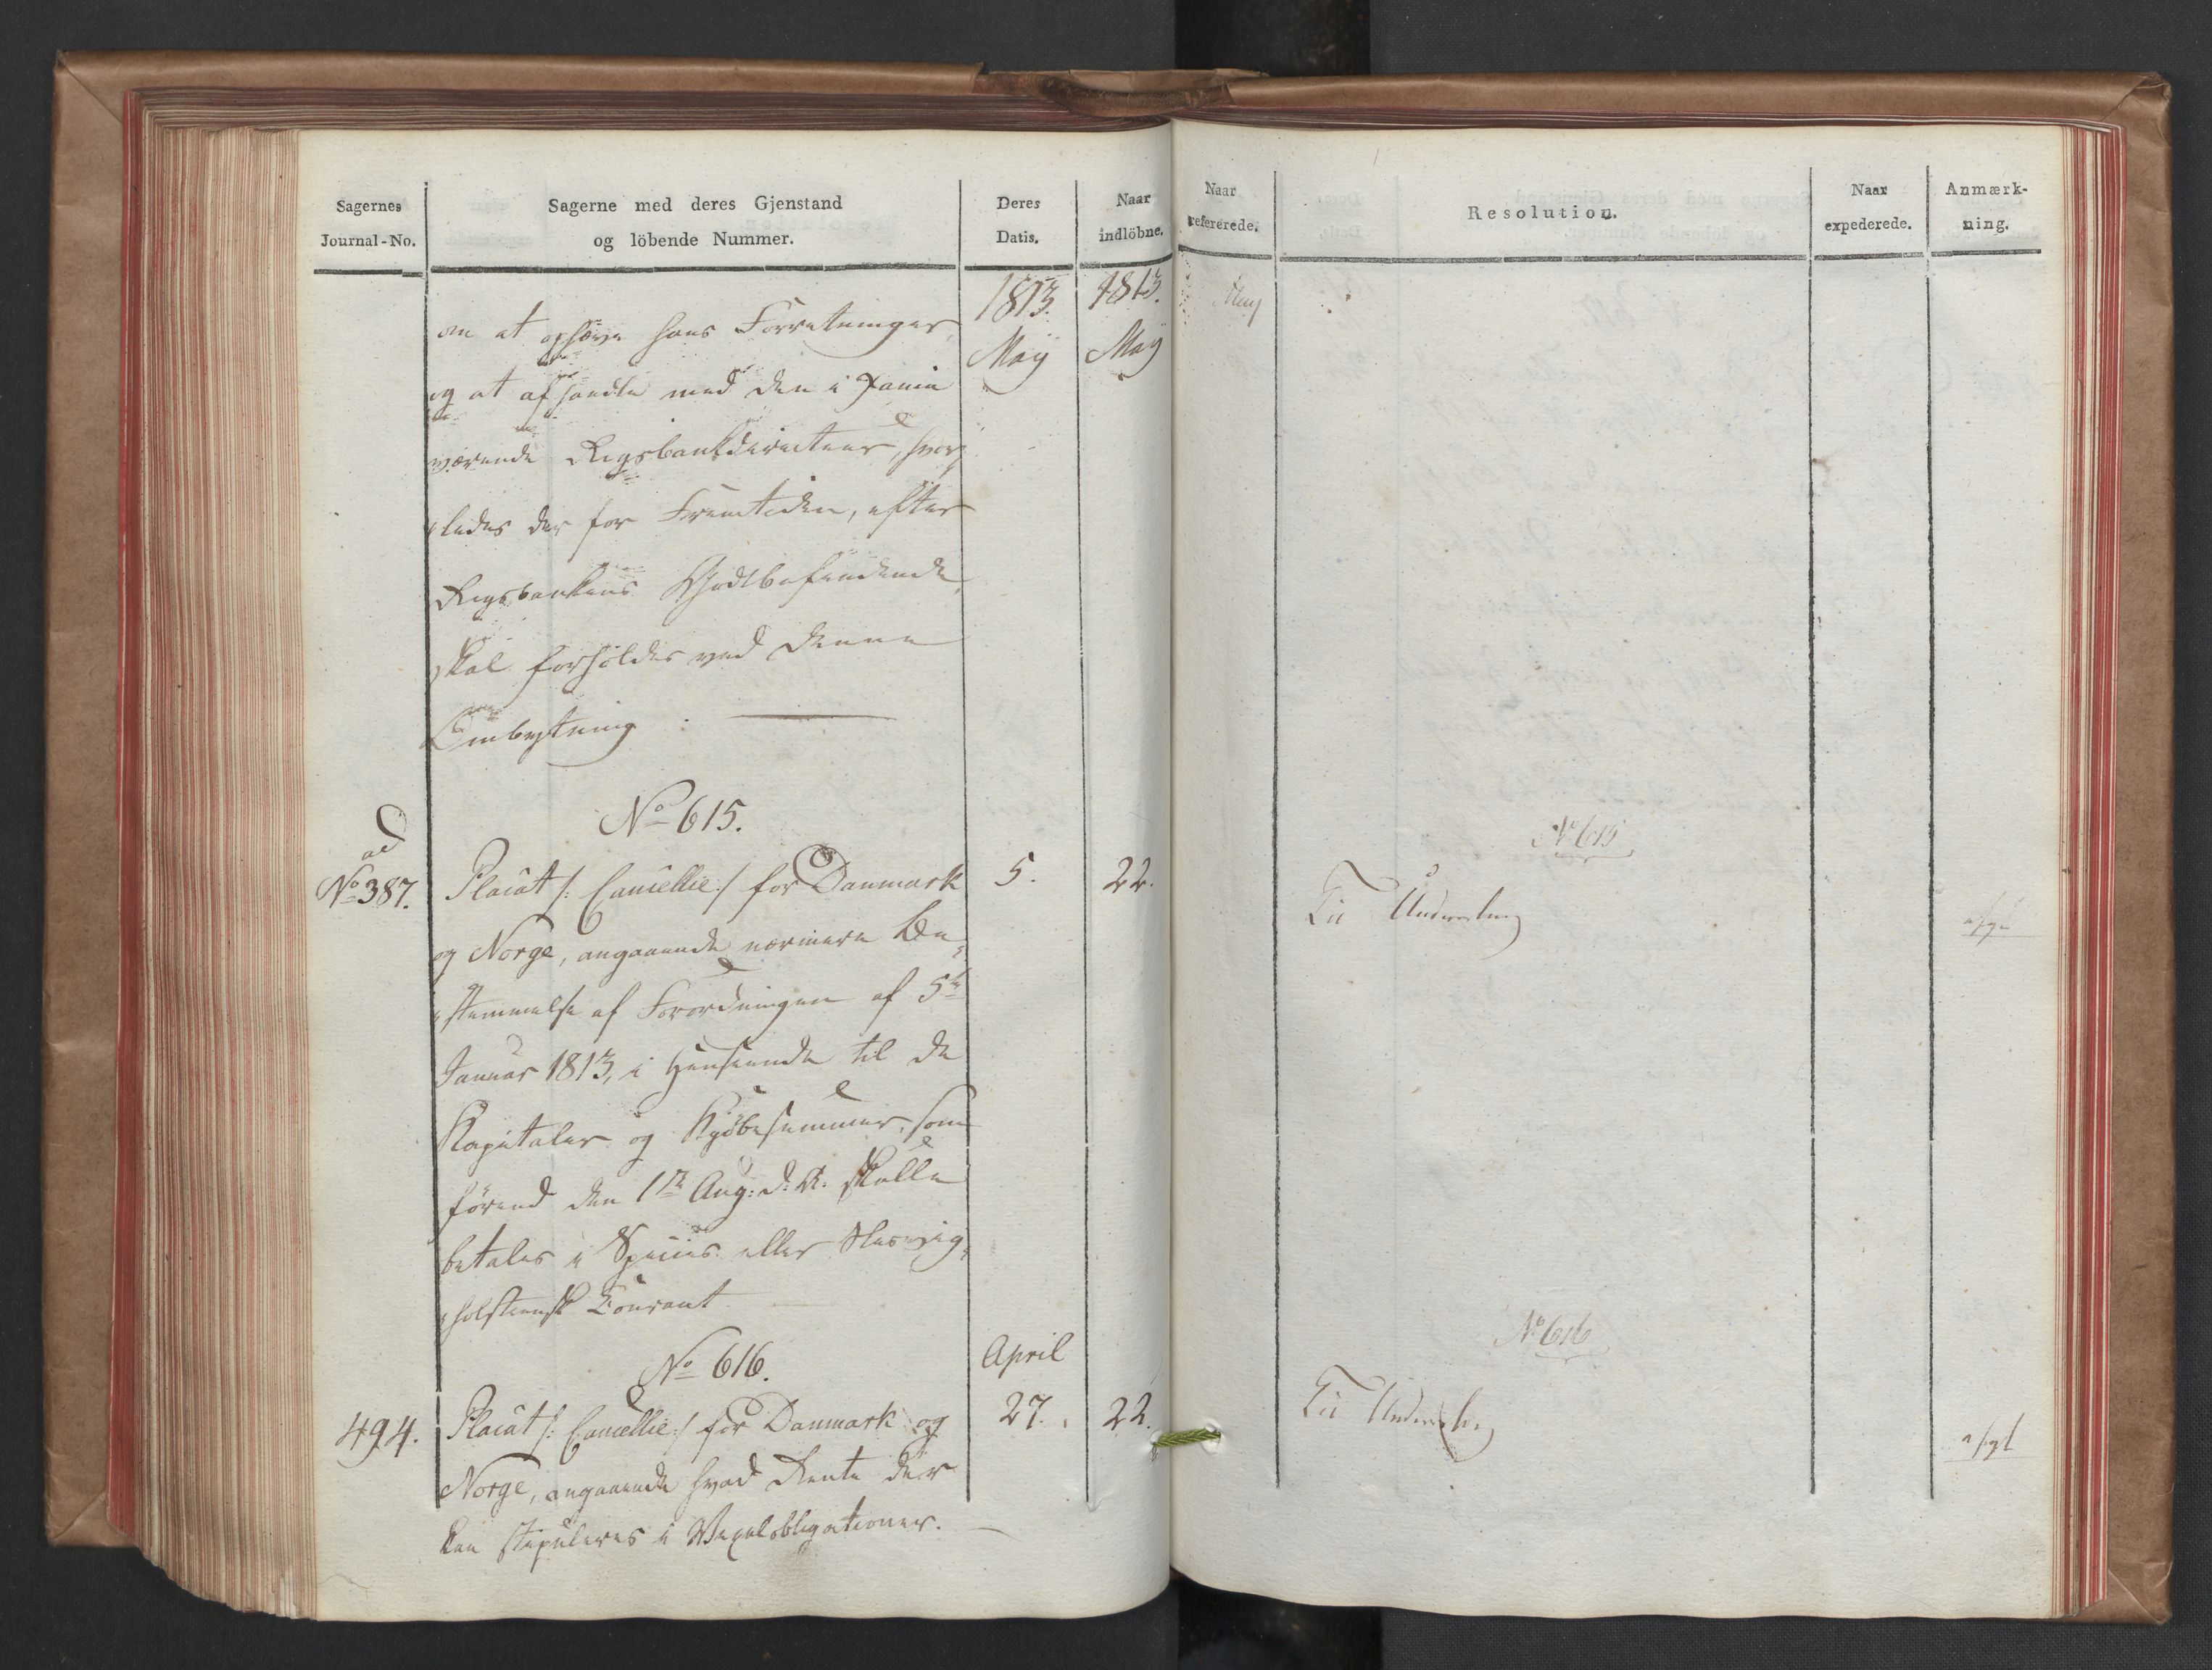 Sagernes
Journal-No.
Sagerne med deres Gjenstand
og löbende Nummer.
Deres
Datis.
Naar
indlöbne.
1813.
May
1813.
May
om at ophæve hans Forretninger
og at afhandle med den i
værende Rigsbankdirecteur, hvor-
ledes der for Fremtiden, efter
Rigsbankens Godtbefindende,
skal forholdes ved denne
Ombytning :
No 615.
ad
No 387.
Placat /: Cancellie :/ for Danmark
5.
22.
og Norge, angaaende nærmere Be-
stemmelse af Forordningen af 5te
Januar 1813, i Henseende til de
Kapitaler og Kjöbesummer, som
förend den 1te Aug: d: A: skulle
betales i Species eller Slesvig-
holsteensk Courant
No 616.
April
494.
Placat /: Cancellie :/ for Danmark og
27.
22.
Norge, angaaende hvad Rente der
kan stipuleres i Vexelobligationer.
Naar
refererede.
Resolution.
Naar
expederede.
Anmærk-
ning.
May
No 615
Til Underretning
No 616
Til Underretning